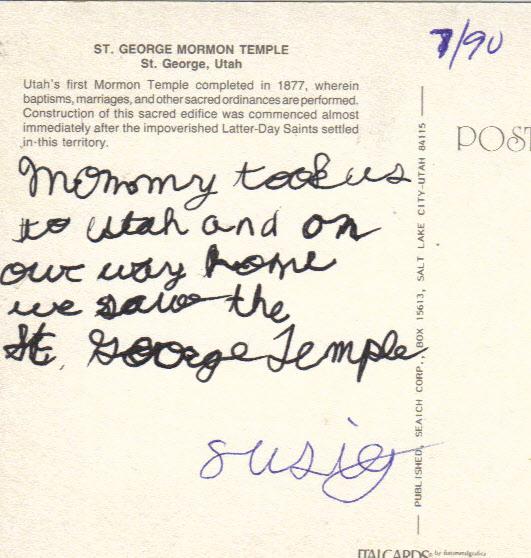 ST. GEORGE MORMON TEMPLE
St. George, Utah
Utah's first Mormon Temple completed in 1877, wherein
baptisms, marriages, and other sacred ordinances are performed.
Construction of this sacred edifice was commenced almost
immediately after the impoverished Latter-Day Saints settled
in this territory.
7/90
POST
Mommy took us
to utah and on
our way home
we saw the
St. George Temple
susie
PUBLISHED, SEAICH CORP., BOX 15613, SALT LAKE CITY-UTAH 84115
ITALCARDS